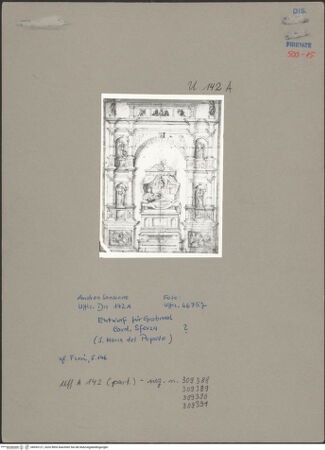 DIS.
FIRENZE
500-15
U 142 A
Andrea Sansovino
Uffiz. Dis 142 A
Foto:
Uffiz.
Entwurf für Grabmal
Card. Sforza ?
(S. Maria del Popolo)
vgl. Ferri, S.
Uff A 142 (part.) - neg. n. 309388
309389
309390
309391